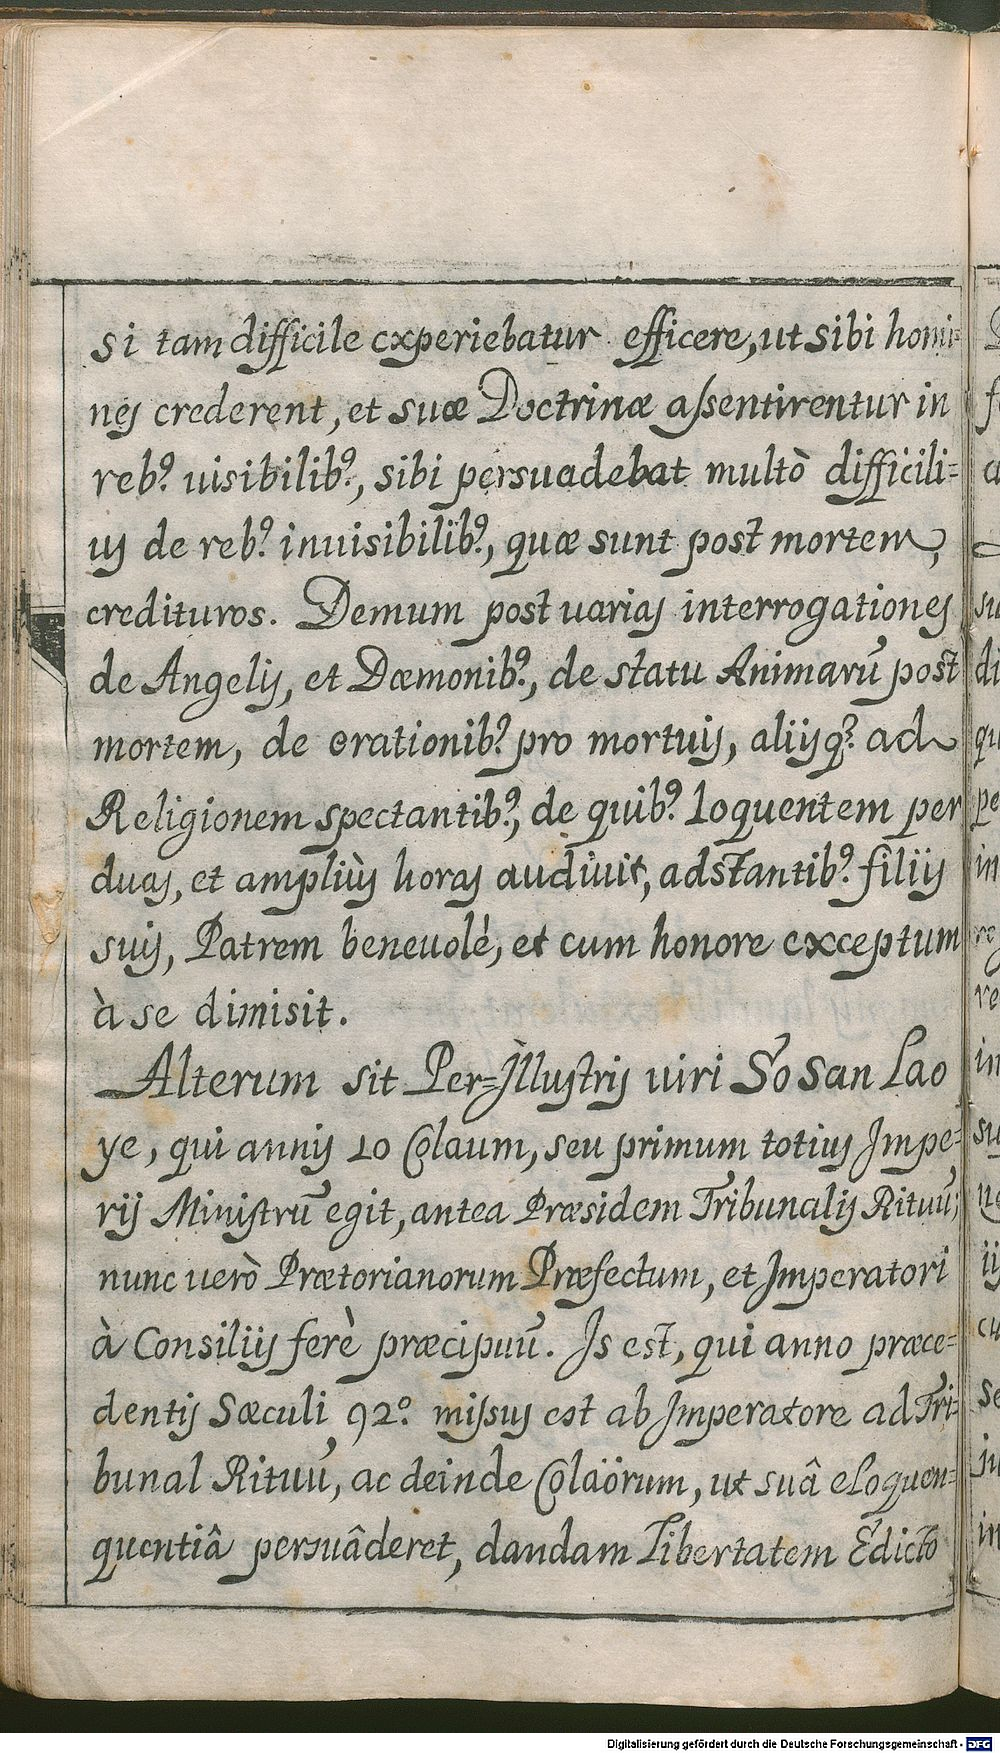 si tam difficile experiebatur efficere, ut sibi homi-
nes crederent, et suæ Doctrinæ assentirentur in
reb9. uisibilib9., sibi persuadebat multò difficili=
us de reb9. inuisibilib9., quæ sunt post mortem,
credituros. Demum post uarias interrogationes
de Angelis, et Dæmonib9., de statu Animarū post
mortem, de orationib9. pro mortuis, aliisq3. ad
Religionem spectantib9., de quib9. loquentem per
duas, et ampliùs horas audiuit, adstantib9. filiis
suis, Patrem beneuolé, et cum honore exceptum
à se dimisit.
Alterum sit Per=Jllustris uiri So San Lao
ye, qui annis 10 Colaum, seu primum totius Jmpe=
rij Ministrū egit, antea Præsidem Tribunalis Rituū;
nunc uerò Prætorianorum Præfectum, et Jmperatori
à Consiliis ferè præcipuū. Js est, qui anno præce=
dentis Sæculi 92º missus est ab Jmperatore ad Tri=
bunal Rituū, ac deinde Colaörum, ut suâ eloquen=
quentiâ persuâderet, dandam Libertatem Edicto
Digitalisierung gefördert durch die Deutsche Forschungsgemeinschaft - DFG